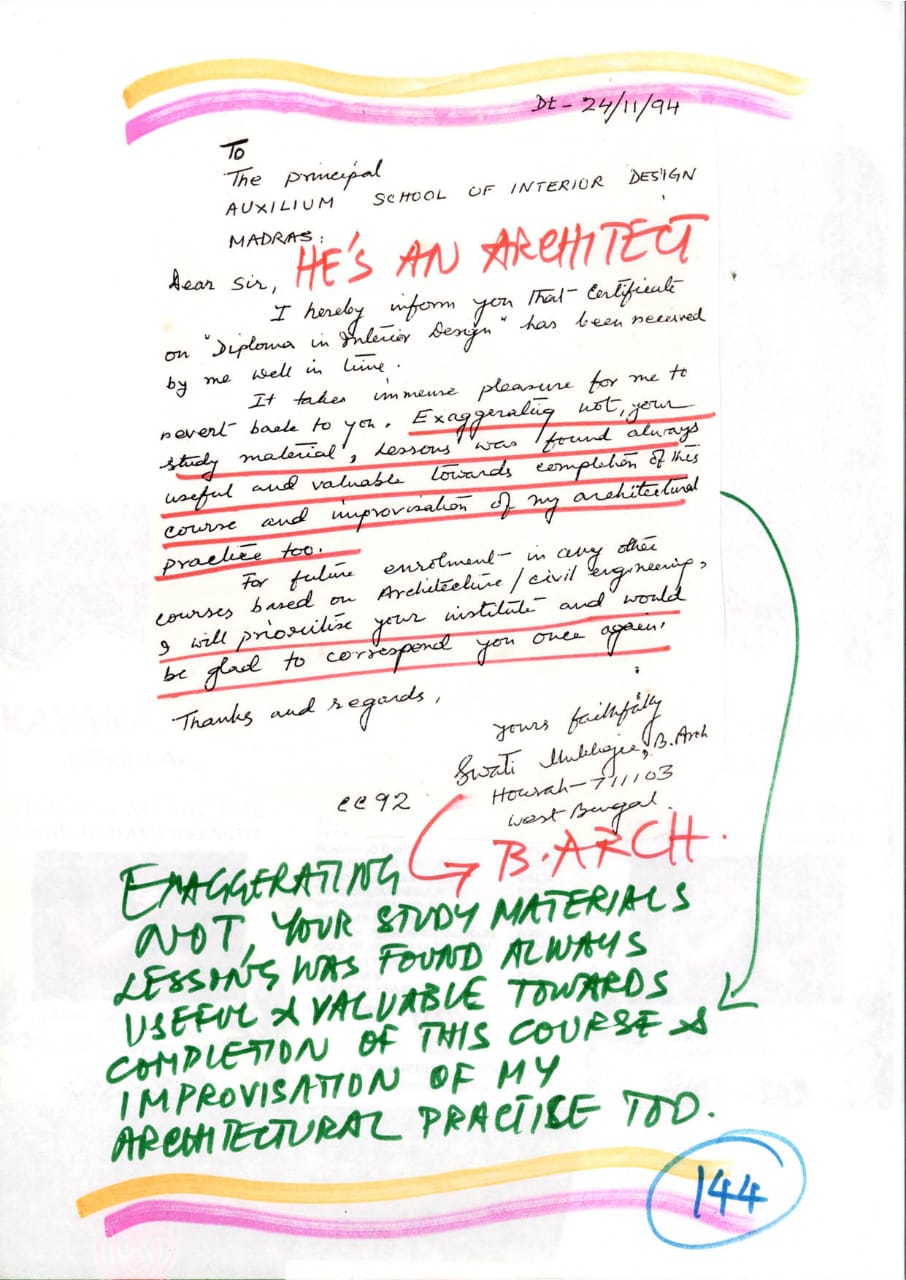 Dt - 24/11/94
To
The principal
AUXILIUM SCHOOL OF INTERIOR DESIGN
MADRAS:
HE'S AN ARCHITECT
Dear Sir,
I hereby inform you that certificate
on "Diploma in Interior Design" has been received
by me well in time.
It takes immense pleasure for me to
revert back to you. Exaggerating not, your
study material, Lessons was found always
useful and valuable towards completion of this
course and improvisation of my architectural
practice too.
For future enrolment in any other
courses based on Architecture/civil engineering,
I will prioritise your institute and would
be glad to correspond you once again.
Thanks and regards,
yours faithfully
Swati Mukherjee, B.Arch
Howrah-711103
West Bengal.
CC92
B.ARCH.
EXAGGERATING
NOT, YOUR STUDY MATERIALS
LESSONS WAS FOUND ALWAYS
USEFUL & VALUABLE TOWARDS
COMPLETION OF THIS COURSE &
IMPROVISATION OF MY
ARCHITECTURAL PRACTISE TOO.
144